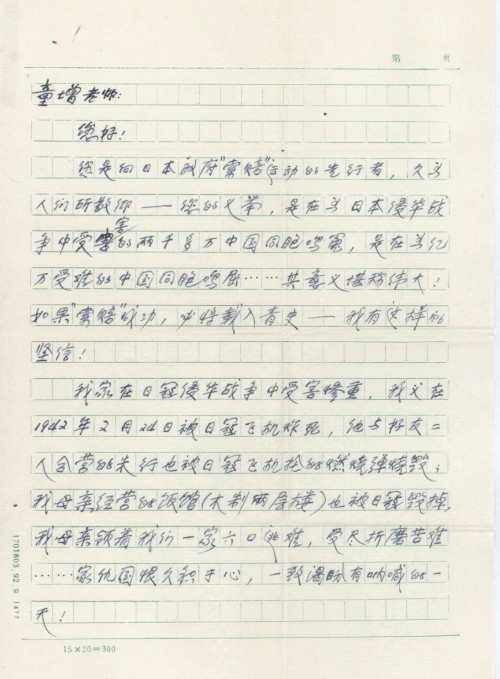 第 页
童增老师:
您好!
您是向日本政府"索赔"运动的先行者,久为
人们所敬仰——您的义举,是在为日本侵华战
争中受害的两千多万中国同胞鸣冤,是在为亿
万受难的中国同胞鸣屈……其意义堪称伟大!
如果"索赔"成功,必将载入青史——我有这样的
坚信!
我家在日寇侵华战争中受害惨重,我父在
1942年2月24日被日寇飞机炸死,他与好友二
人合营的米行也被日寇飞机抢的燃烧弹烧毁;
我母亲经营的饭馆(木制两层楼)也被日寇毁掉,
我母亲领着我们一家六口逃难,受尽折磨苦难
……家仇国恨久积于心,一致渴盼有呐喊的一
天!
1701603.92.9 1477
15×20=300